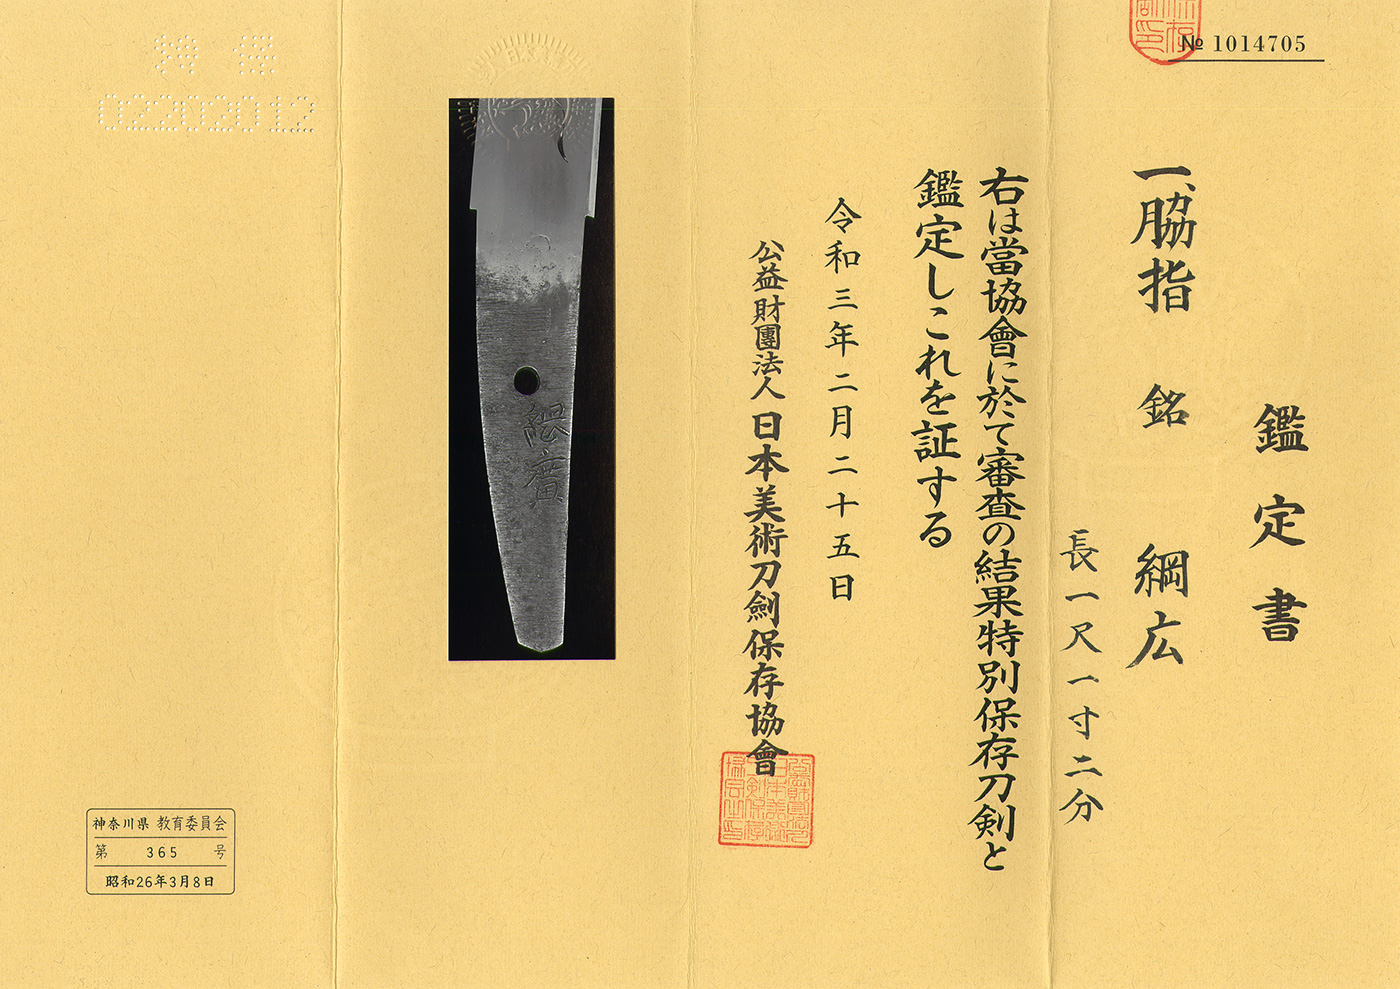 № 1014705
鑑定書
一、脇指 銘 綱広
長一尺一寸二分
右は當協會に於て審査の結果特別保存刀剣と
鑑定しこれを証する
令和三年二月二十五日
公益財團法人 日本美術刀劍保存協會
綱廣
02202012
神奈川県 教育委員会
第 365 号
昭和26年3月8日